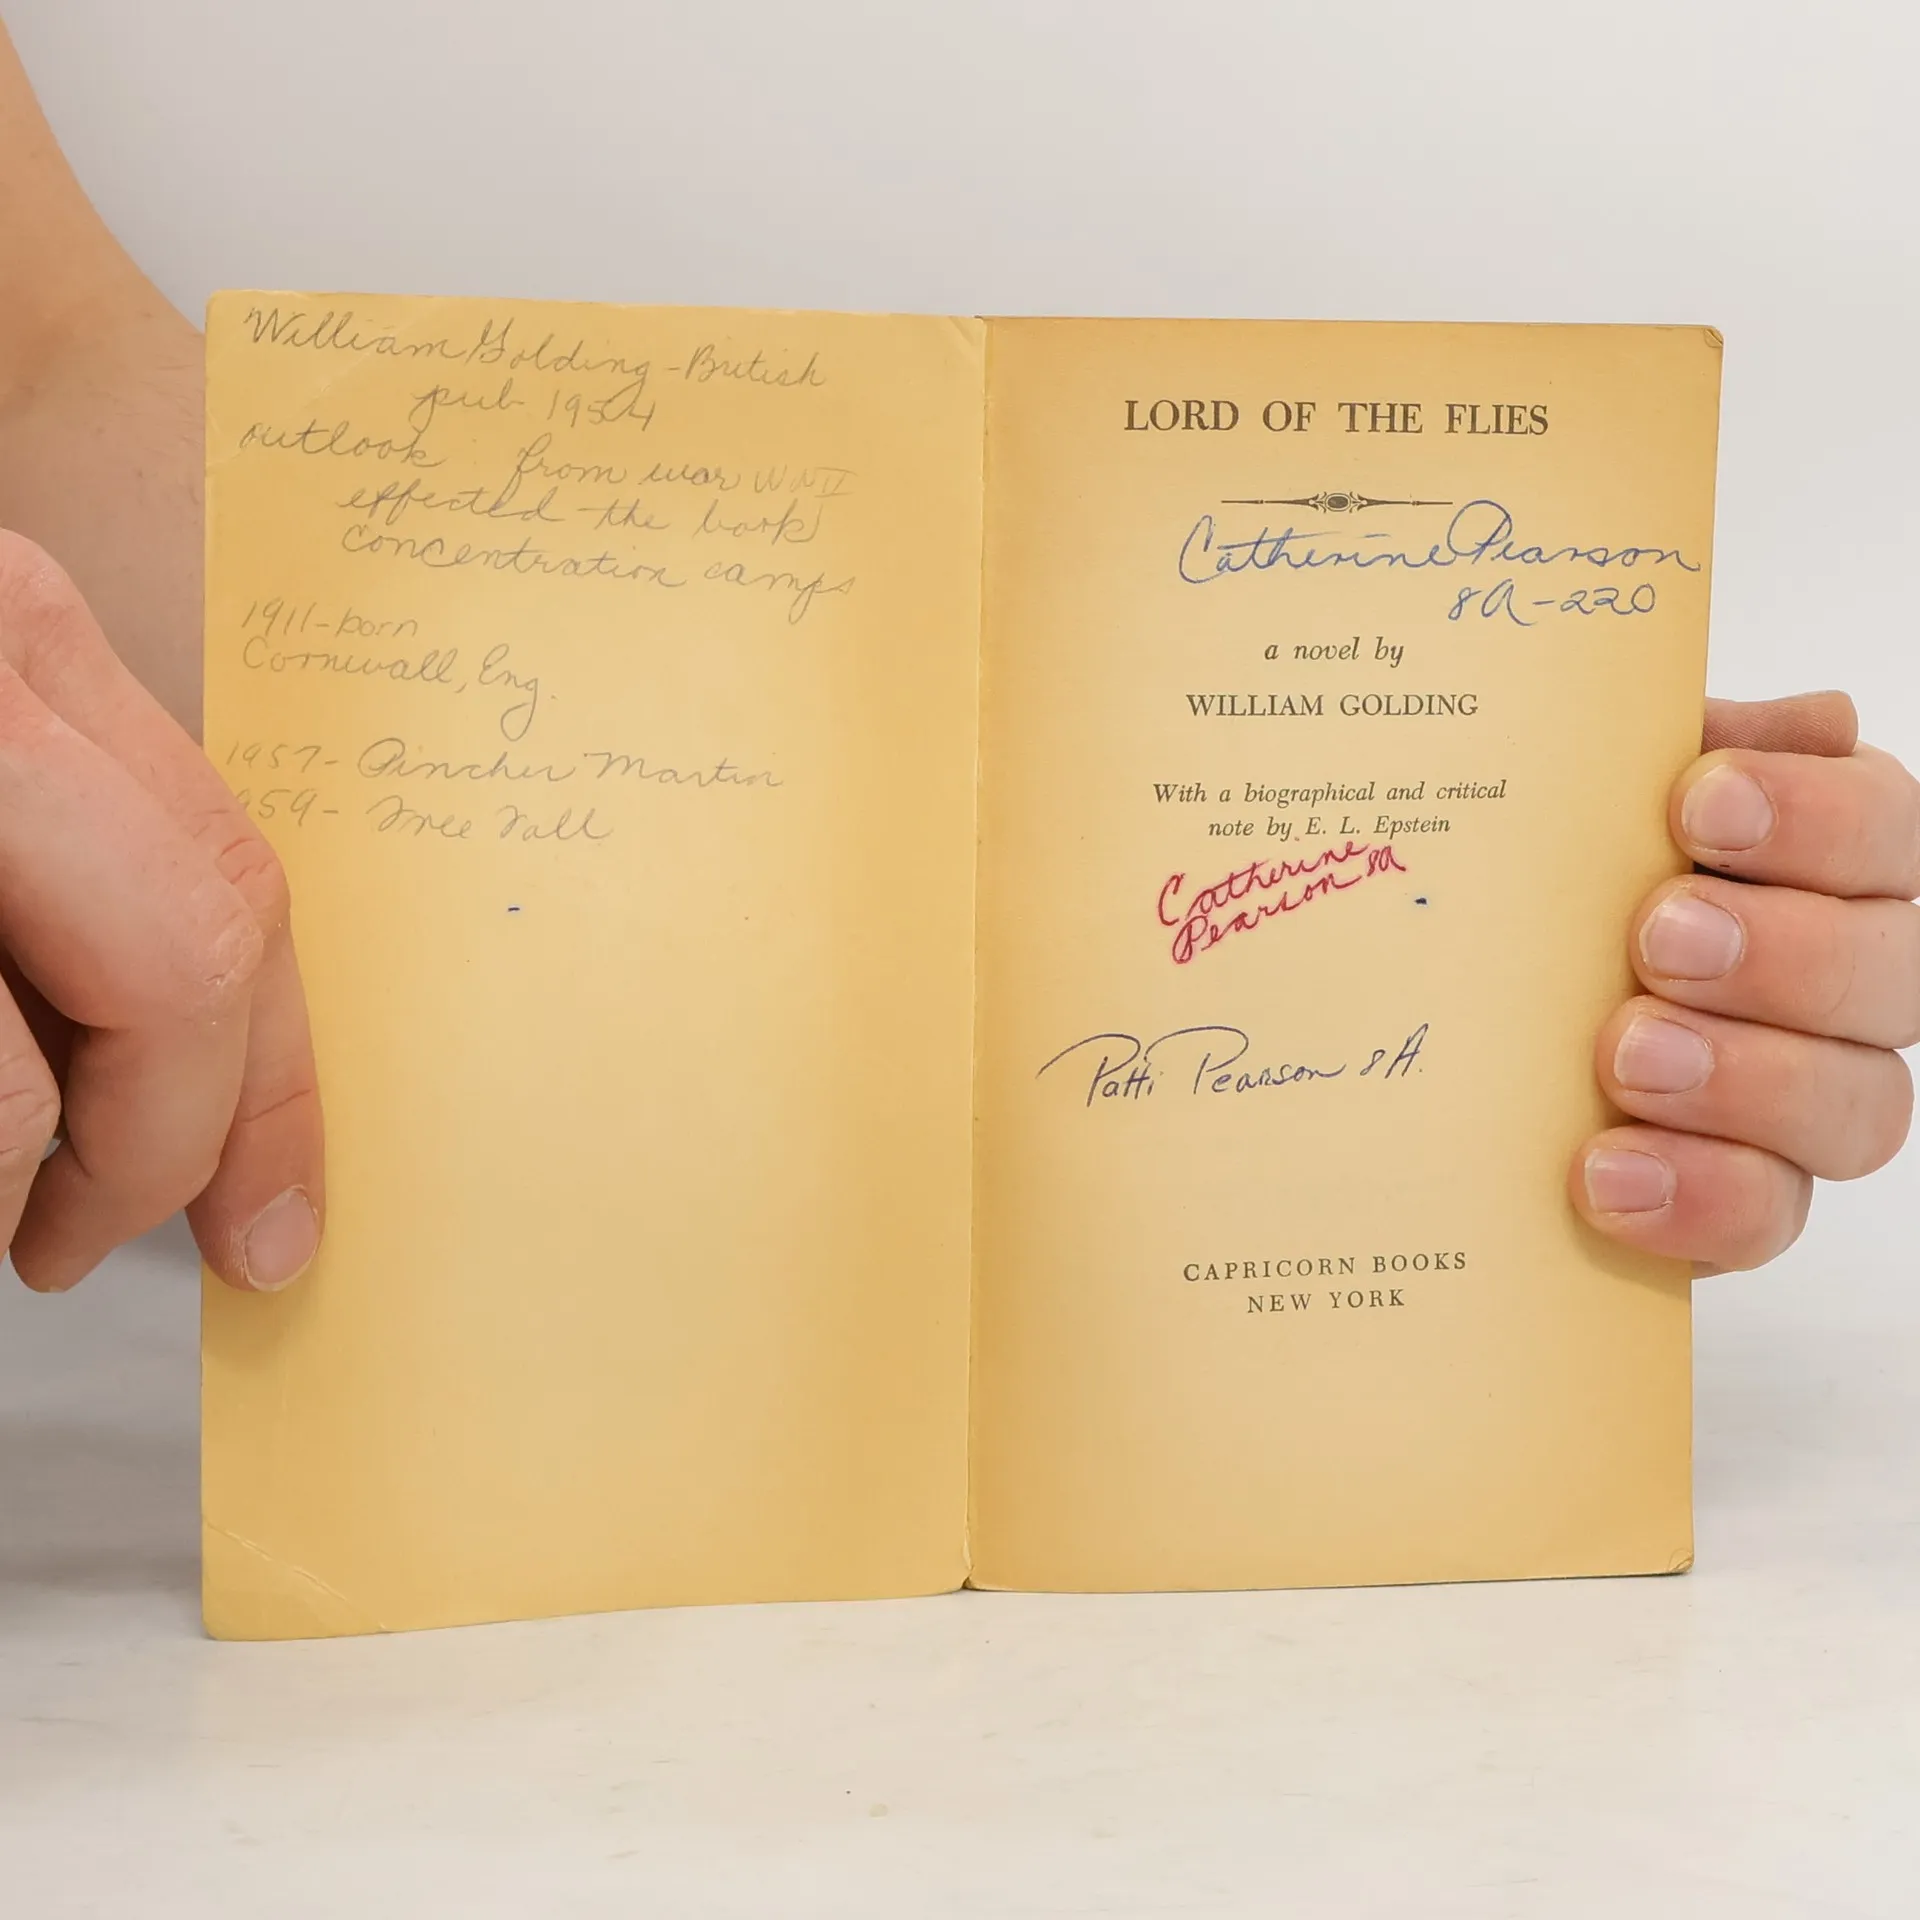 William Golding - British
pub 1954
outlook from war WWII
effected the book
concentration camps
1911 - born
Cornwall, Eng.
1957 - Pincher Martin
959 - Free Fall
LORD OF THE FLIES
Catherine Pearson
8A - 220
a novel by
WILLIAM GOLDING
With a biographical and critical
note by E. L. Epstein
Catherine
Pearson 8A
Patti Pearson 8A.
CAPRICORN BOOKS
NEW YORK